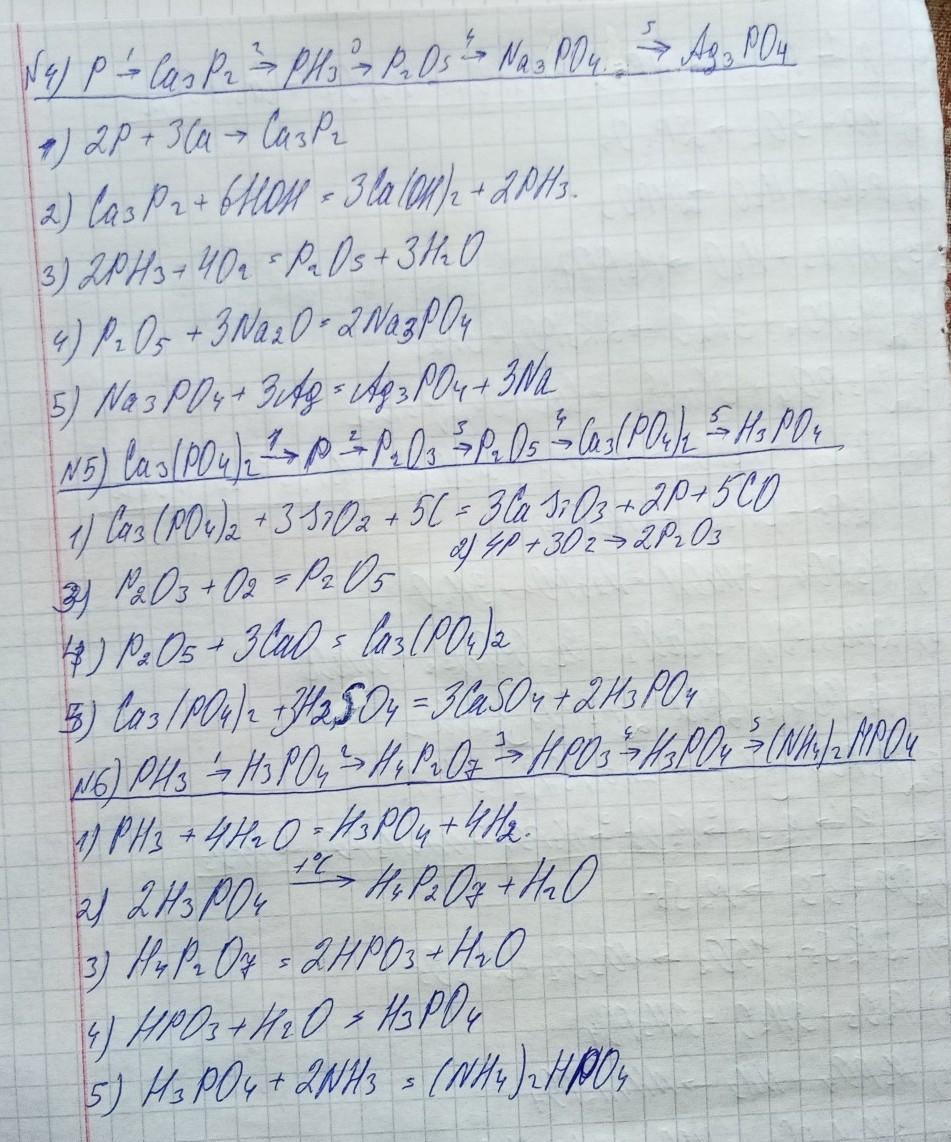 N4) P ¹→ Ca3P2 ²→ PH3 ³→ P2O5 ⁴→ Na3PO4 ⁵→ Ag3PO4
1) 2P + 3Ca → Ca3P2
2) Ca3P2 + 6HOH = 3Ca(OH)2 + 2PH3.
3) 2PH3 + 4O2 = P2O5 + 3H2O
4) P2O5 + 3Na2O = 2Na3PO4
5) Na3PO4 + 3Ag = Ag3PO4 + 3Na
N5) Ca3(PO4)2 ¹→ P ²→ P2O3 ³→ P2O5 ⁴→ Ca3(PO4)2 ⁵→ H3PO4
1) Ca3(PO4)2 + 3SiO2 + 5C = 3CaSiO3 + 2P + 5CO
2) 4P + 3O2 → 2P2O3
3) P2O3 + O2 = P2O5
4) P2O5 + 3CaO = Ca3(PO4)2
5) Ca3(PO4)2 + 3H2SO4 = 3CaSO4 + 2H3PO4
N6) PH3 ¹→ H3PO4 ²→ H4P2O7 ³→ HPO3 ⁴→ H3PO4 ⁵→ (NH4)2HPO4
1) PH3 + 4H2O = H3PO4 + 4H2.
2) 2H3PO4 t°C→ H4P2O7 + H2O
3) H4P2O7 = 2HPO3 + H2O
4) HPO3 + H2O = H3PO4
5) H3PO4 + 2NH3 = (NH4)2HPO4